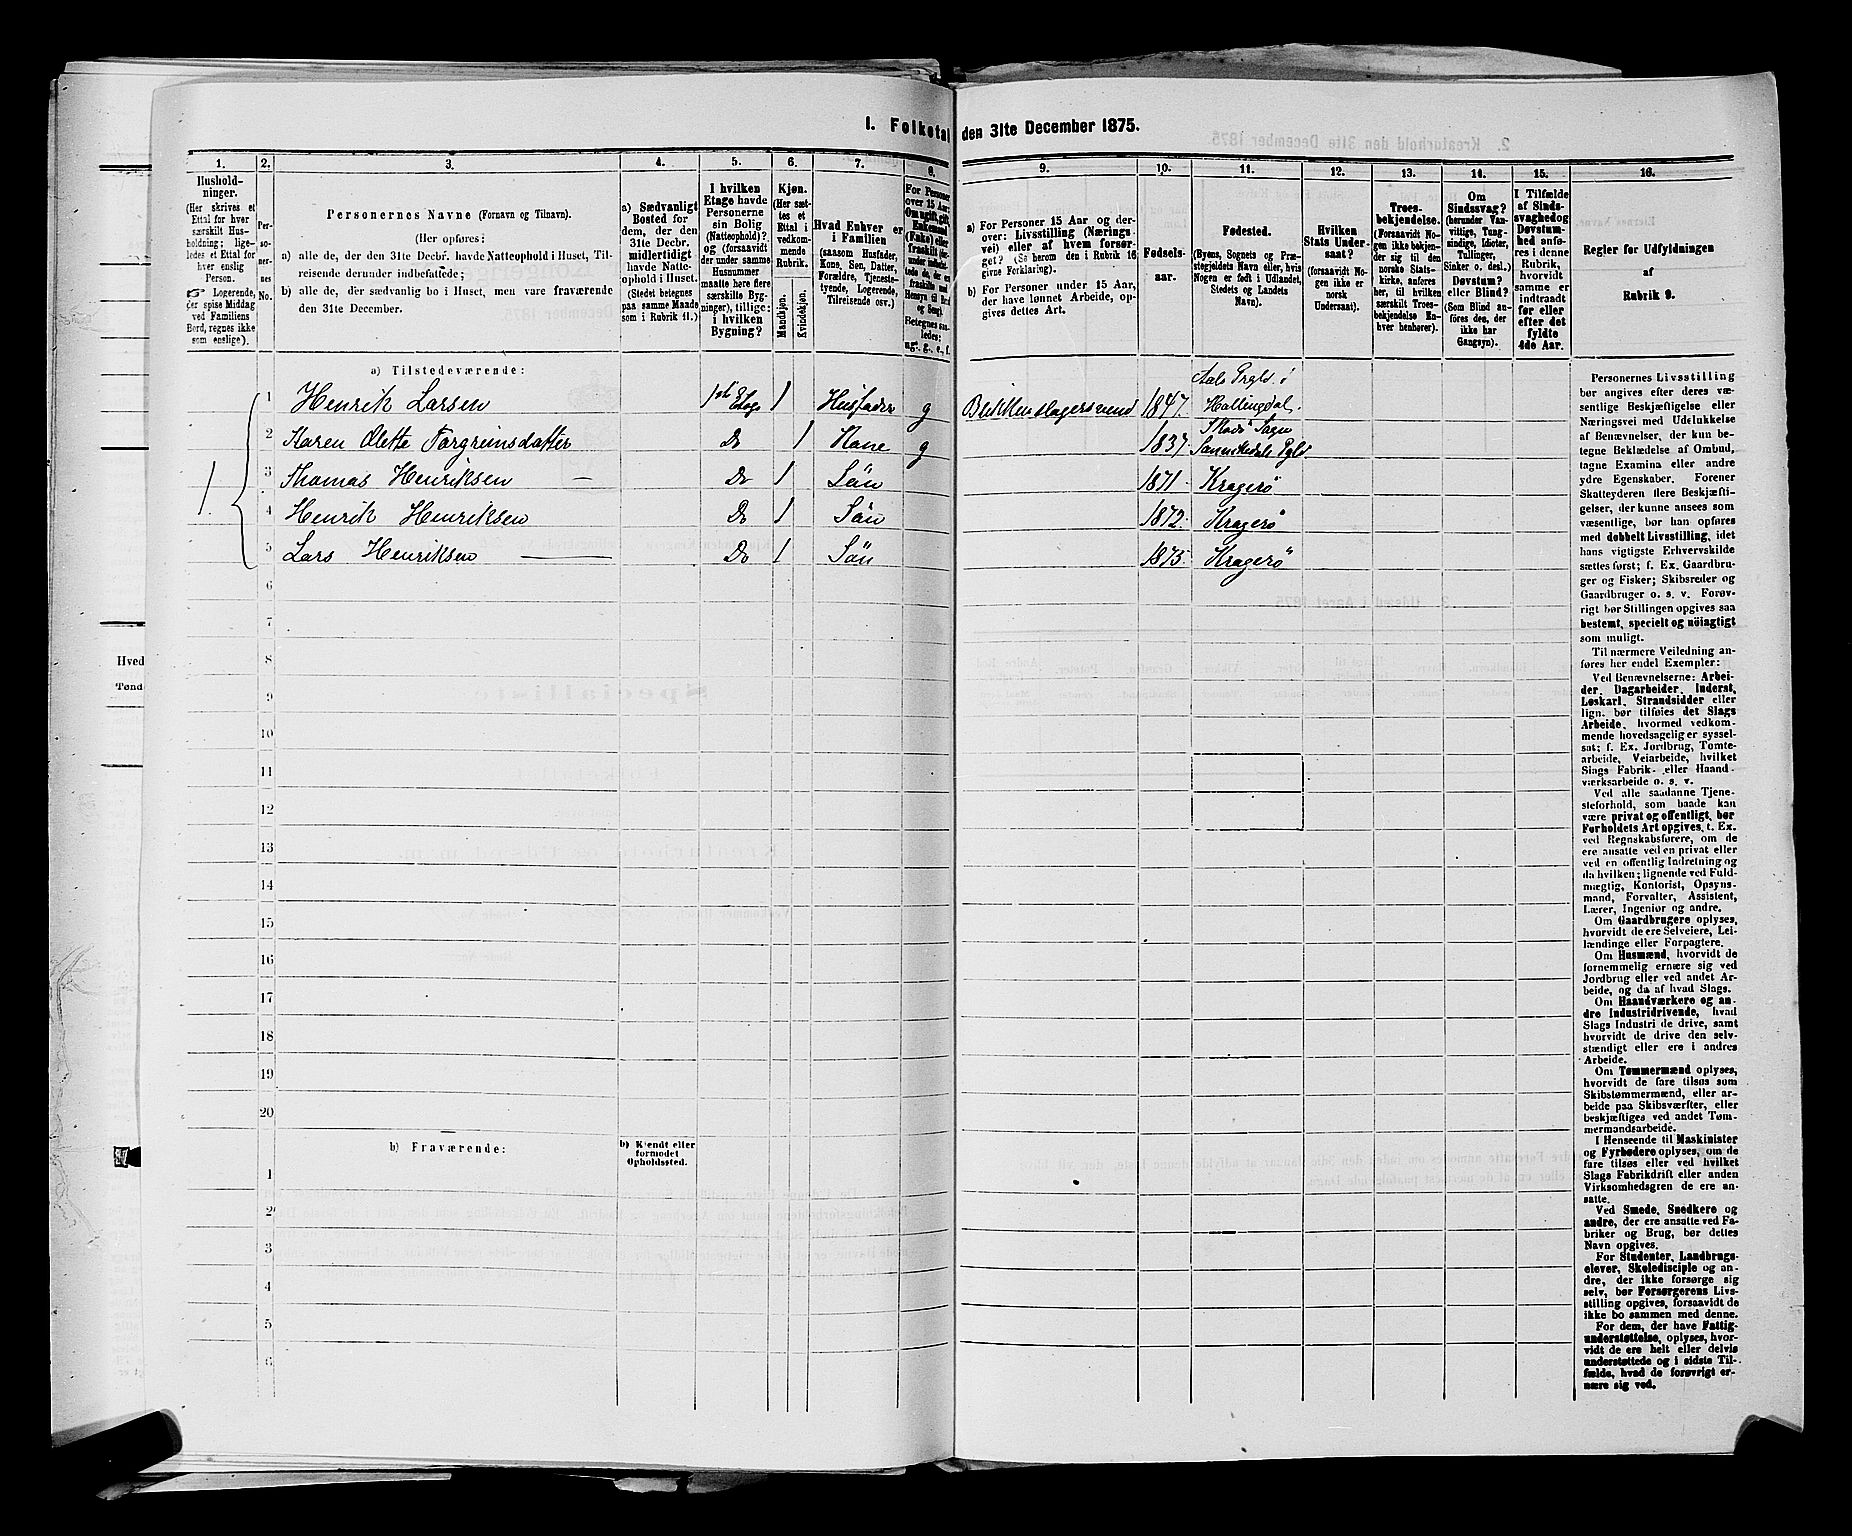 I. Folketal den 31te December 1875.
1. 2. 3. 4. 5. 6. 7. 8. 9. 10. 11. 12. 13. 14. 15. 16.
Hushold-
ninger.
(Her skrives et
Ettal for hver
særskilt Hus-
holdning; lige-
ledes et Ettal for
hver enslig
Person.
☞ Logerende,
der spise Middag
ved Familiens
Bord, regnes ikke
som enslige).
Per-
so-
ner-
nes
No.
Personernes Navne (Fornavn og Tilnavn).
(Her opføres:
a) alle de, der den 31te Decbr. havde Natteophold i Huset, Til-
reisende derunder indbefattede;
b) alle de, der sædvanlig bo i Huset, men vare fraværende
den 31te December.
a) Sædvanligt
Bosted for
dem, der den
31te Decbr.
midlertidigt
havde Natte-
ophold i Huset.
(Stedet betegnes
paa samme Maade
som i Rubrik 11.)
I hvilken
Etage havde
Personerne
sin Bolig
(Natteophold)?
og (forsaavidt
der under samme
Husnummer
maatte høre flere
særskilte Byg-
ninger), tillige:
i hvilken
Bygning?
Kjøn.
(Her sæt-
tes et
Ettal i
vedkom-
mende
Rubrik.
Mandkjøn.
Kvindekjøn.
Hvad Enhver er
i Familien
(saasom Husfader,
Kone, Søn, Datter,
Forældre, Tjeneste-
tyende, Logerende,
Tilreisende osv.)
For Personer
over 15 Aar:
Om ugift, gift,
Enkemand
(Enke) eller
fraskilt
Betegnes saa-
ledes:
ug., g., e., f.
a) For Personer 15 Aar og der-
over: Livsstilling (Nærings-
vei) eller af hvem forsør-
get? (Se herom den i Rubrik 16
givne Forklaring).
b) For Personer under 15 Aar,
der have lønnet Arbeide, op-
gives dettes Art.
Fødsels-
aar.
Fødested.
(Byens, Sognets og Præ-
stegjeldets Navn eller, hvis
Nogen er født i Udlandet,
Stedets og Landets
Navn).
Hvilken
Stats Under-
saat?
(forsaavidt No-
gen ikke er
norsk
Undersaat).
Troes-
bekjendelse.
(Forsaavidt No-
gen ikke bekjen-
der sig til den
norske Stats-
kirke, anføres
her, til hvilken
særskilt Troes-
bekjendelse En-
hver henhører).
Om
Sindssvag?
(herunder Van-
vittige, Tung-
sindige, Idioter,
Tullinger,
Sinker o. desl.)
Døvstum?
eller Blind?
(Som Blind an-
føres den, der
ikke har
Gangsyn).
I Tilfælde
af Sinds-
svaghed og
Døvstum-
hed anfø-
res i denne
Rubrik,
hvorvidt
samme er
indtraadt
før eller
efter det
fyldte
4de Aar.
Regler for Udfyldningen
af
Rubrik 9.
a) Tilstedeværende:
1 Henrik Larsen 1ste Etage 1 Husfader g Blikkenslagersvend 1847. Aals Prgld. i Hallingdal.
2 Karen Olette Torgreinsdatter Do 1 Kone g 1837. Skadö Sogn Sannikedals Pgld
3 Thomas Henriksen — Do 1 Sön 1871. Kragerö
1. 4 Henrik Henriksen Do 1 Sön 1872. Kragerö
5 Lars Henriksen — Do 1 Sön 1875. Kragerö
6
7
8
9
10
11
12
13
14
15
16
17
18
19
20
b) Fraværende:
b) Kjendt eller
formodet
Opholdssted.
1
2
3
4
5
6
Personernes Livsstilling
bør angives efter deres væ-
sentlige Beskjæftigelse eller
Næringsvei med Udelukkelse
af Benævnelser, der kun be-
tegne Beklædelse af Ombud,
tagne Examina eller andre
ydre Egenskaber. Forener
Skatteyderen flere Beskjæfti-
gelser, der kunne ansees som
væsentlige, bør han opføres
med dobbelt Livsstilling, idet
hans vigtigste Erhvervskilde
sættes først; f. Ex. Gaardbru-
ger og Fisker; Skibsreder og
Gaardbruger o. s. v. Forøv-
rigt bør Stillingen opgives saa
bestemt, specielt og nöiagtigt
som muligt.
Til nærmere Veiledning an-
føres her endel Exempler:
Ved Benævnelserne: Arbei-
der, Dagarbeider, Inderst,
Løskarl, Strandsidder eller
lign. bør tilføies det Slags
Arbeide, hvormed vedkom-
mende hovedsagelig er syssel-
sat; f. Ex. Jordbrug, Tomte-
arbeide, Veiarbeide, hvilket
Slags Fabrik- eller Haand-
værksarbeide o. s. v.
Ved alle saadanne Tjene-
steforhold, som baade kan
være privat og offentligt, bør
Forholdets Art opgives, t. Ex.
ved Regnskabsførere, om de
ere ansatte ved en privat eller
ved en offentlig Indretning og
da hvilken; lignende ved Fuld-
mægtig, Kontorist, Opsyns-
mand, Forvalter, Assistent,
Lærer, Ingeniør og andre.
Om Gaardbrugere oplyses,
hvorvidt de ere Selveiere, Lei-
lændinge eller Forpagtere.
Om Husmænd, hvorvidt de
fornemmelig ernære sig ved
Jordbrug eller ved andet Ar-
beide, og da af hvad Slags.
Om Haandværkere og an-
dre Industridrivende, hvad
Slags Industri de drive, samt
hvorvidt de drive den selv-
stændigt eller ere i andres
Arbeide.
Om Tømmermænd oplyses,
hvorvidt de fare tilsøs som
Skibstømmermænd, eller ar-
beide paa Skibsværfter, eller
beskjæftiges ved andet Tøm-
mermandsarbeide.
I Henseende til Maskinister
og Fyrbødere oplyses, om de
fare tilsøs eller ved hvilket
Slags Fabrikdrift eller anden
Virksomhedsgren de ere an-
satte.
Ved Smede, Snedkere og
andre, der ere ansatte ved Fa-
briker og Brug, bør dettes
Navn opgives.
For Studenter, Landbrugs-
elever, Skoledisciple og an-
dre, der ikke forsørge sig
selv, bør Forsørgerens Livs-
stilling opgives, forsaavidt de
ikke bo sammen med denne.
For dem, der have Fattig-
understøttelse, oplyses, hvor-
vidt de ere helt eller delvis
understøttede og i sidste Til-
fælde, hvad de forøvrigt er-
nære sig ved.
Hved
Tønd